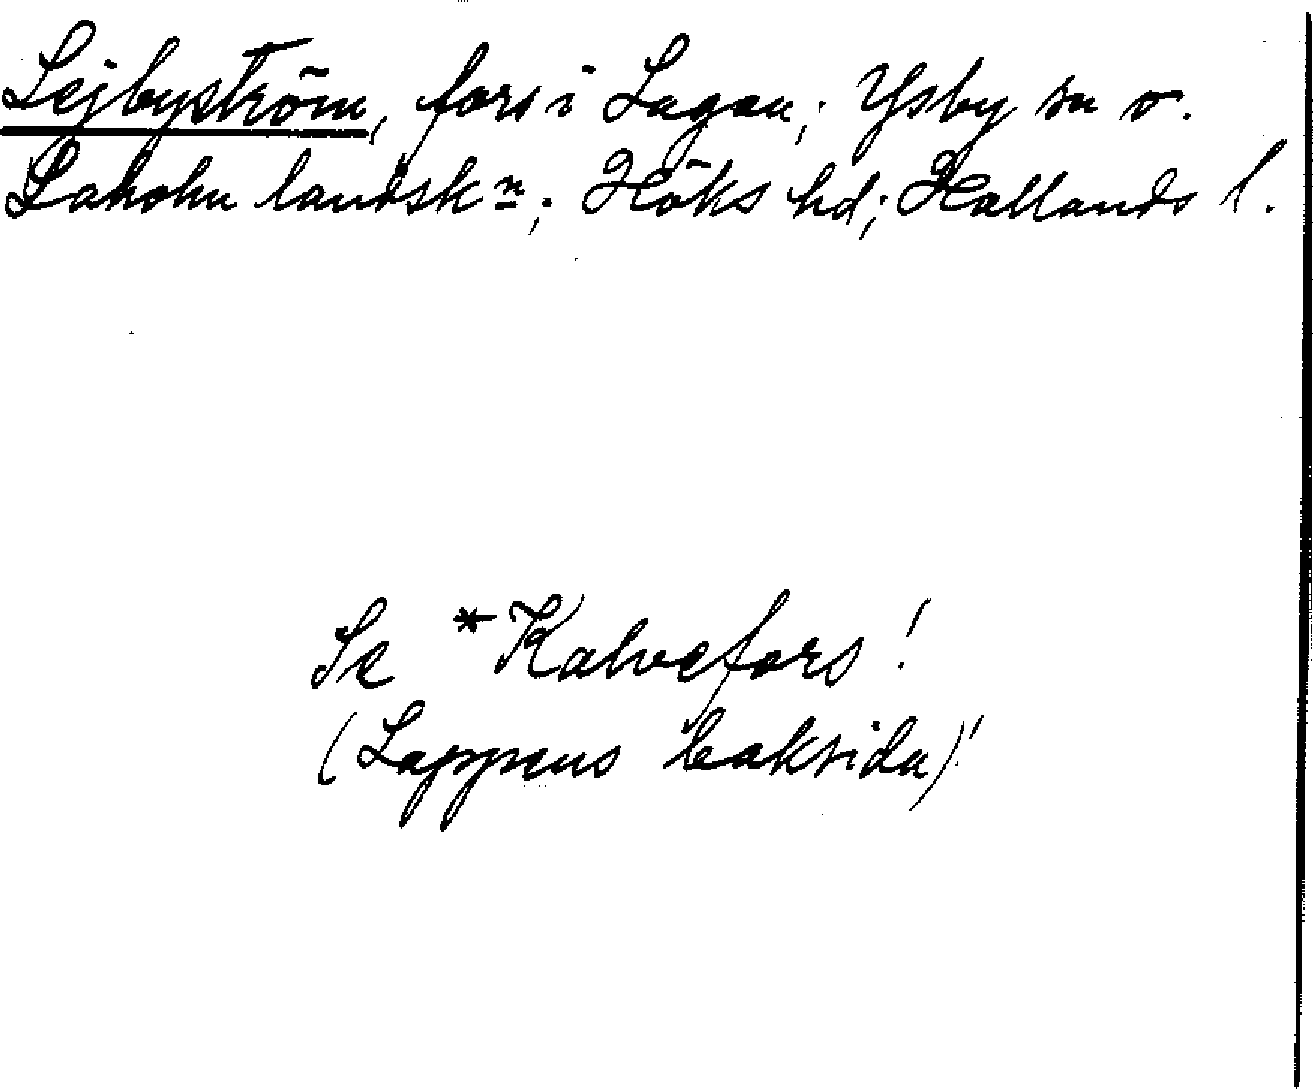 Lejbyström, fors i Lagan; Ysby sn o.
Laholm landsk<u>n</u>; Höks hd; Hallands l.
Se *Kalvefors!
(Lappens baksida)!